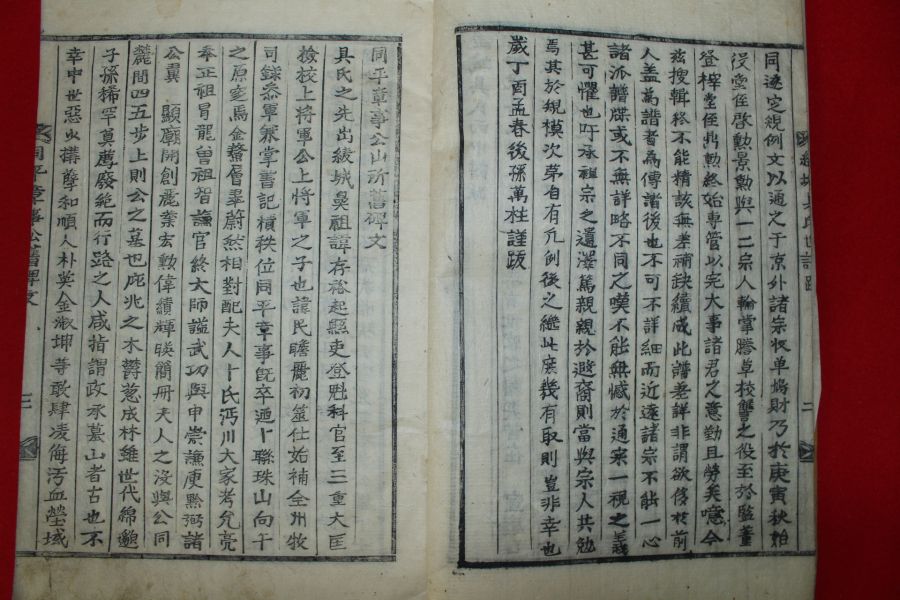 同逺定規例文以通之于京外諸宗收单塢財乃於庚寅秋始
役堂侄啓勳景勳與一二宗人輪掌謄草校讐之役至於監董
登梓堂侄鼎勳終始專管以完大事諸君之意勤且勞矣噫今
玆搜輯終不能精該無差補缺續成此譜差詳非謂欲俢於前
人盖為譜者為傳譜後也不可不詳細而近逺諸宗不能一心
諸派譜牒或不無詳略不同之嘆不能無憾於通宗一視之義
甚可懼也吁承祖宗之遺澤篤親親於遐裔則當與宗人共勉
焉其於規模次苐自有凢例後之繼此庶幾有取則豈非幸也
歲丁酉孟春後孫萬柱謹跋
二
同平章事公山所舊碑文
具氏之先出綾城昊祖諱存裕起縣吏登魁科官至三重大匡
檢校上將軍公上將軍之子也諱民瞻麗初筮仕始補全州牧
司録叅軍兼掌書記積秩位同平章事旣卒逎卜聯珠山向午
之原窆馬金鰲層翠蔚然相對配夫人卞氏沔川大家考允亮
奉正祖冒龍曽祖智謙官終大師謚武功與申崇謙庾黔弼諸
公翼　顯廟開創麗業宏勳偉績輝暎簡冊夫人之沒與公同
塋間四五步上則公之墓也庇兆之木欝葱成林維世代綿邈
子孫稀罕莫薦廢絶而行路之人咸指謂政承墓山者古也不
幸中世惡少搆孽和順人朴英金淑坤等敢肆凌侮汚血塋域
同平章事公舊碑文
三